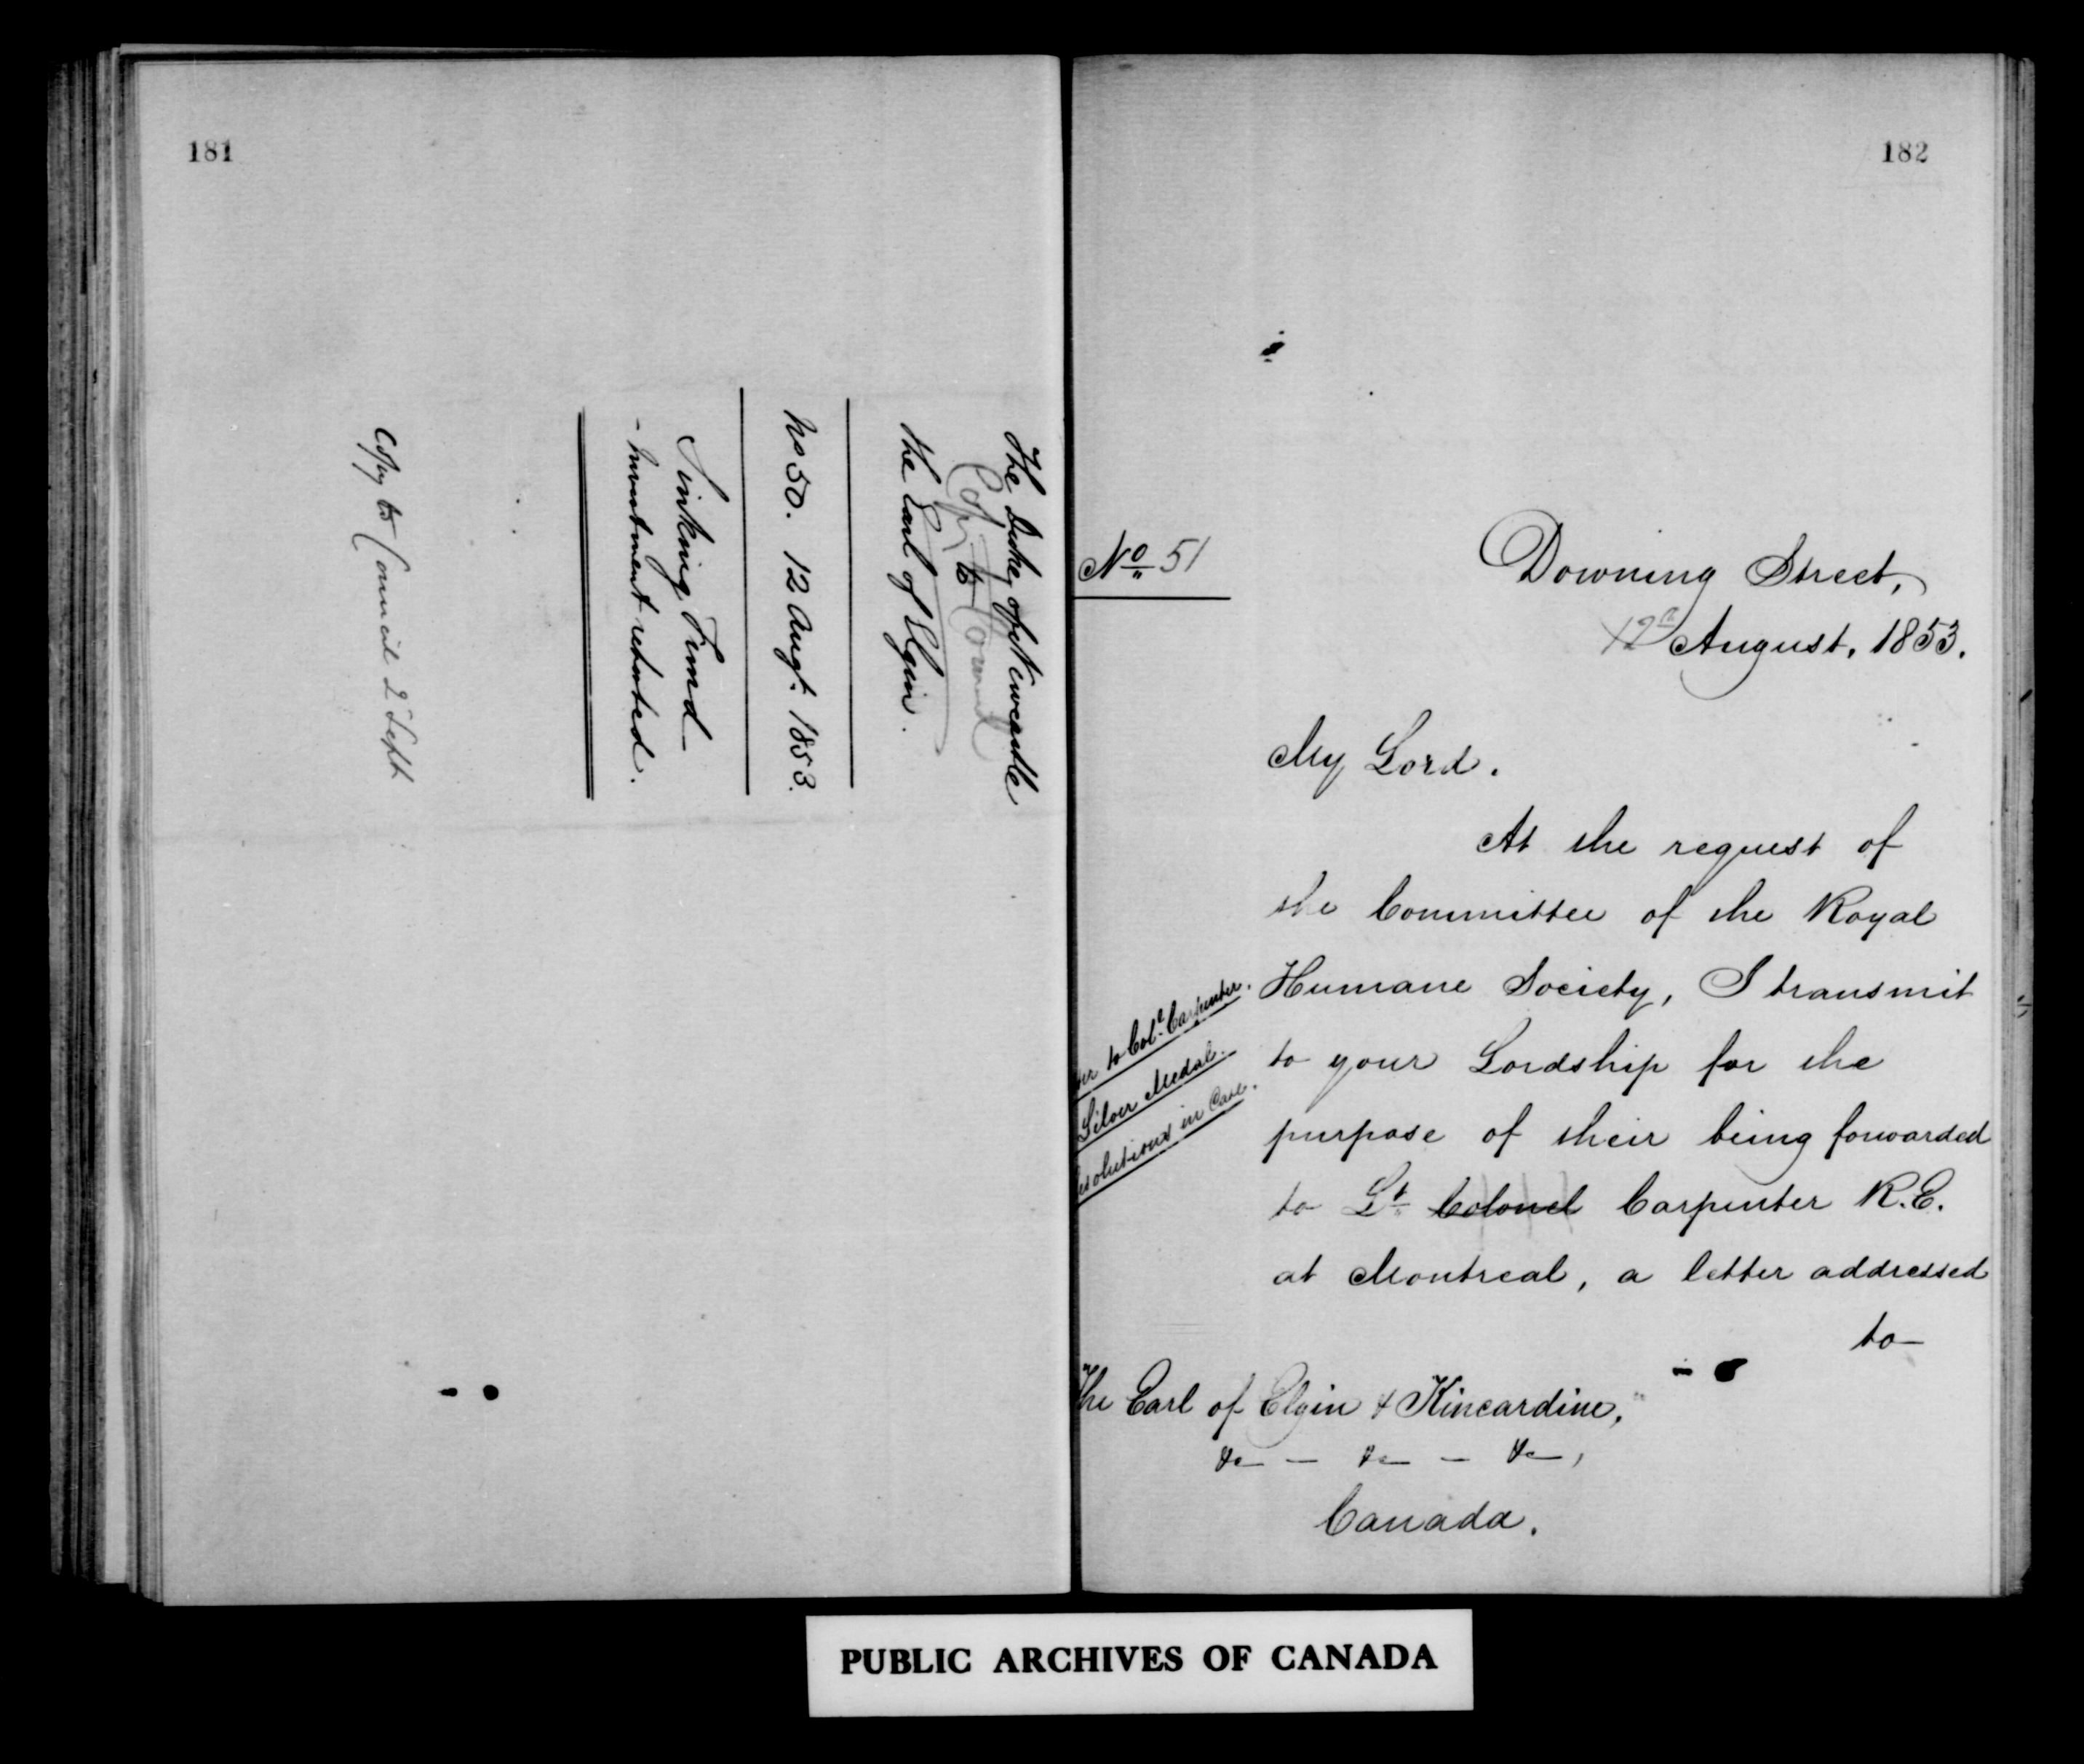 181
The Duke of Newcastle
Copy to Council
the Earl of Elgin.
No 50. 12 Augt. 1853.
Sinking Fund
- Investment reported.
Copy to Council 2 Sept
182
No 51
Downing Street,
12 August, 1853.
My Lord.
At the request of
the Committee of the Royal
Humane Society, I transmit
to your Lordship for the
purpose of their being forwarded
to Lt Colonel Carpenter R.E.
at Montreal, a letter addressed
to
to Col. Carpenter.
Silver Medal.
esolutions in Case.
The Earl of Elgin & Kincardine,
&c — &c — &c,
Canada.
PUBLIC ARCHIVES OF CANADA